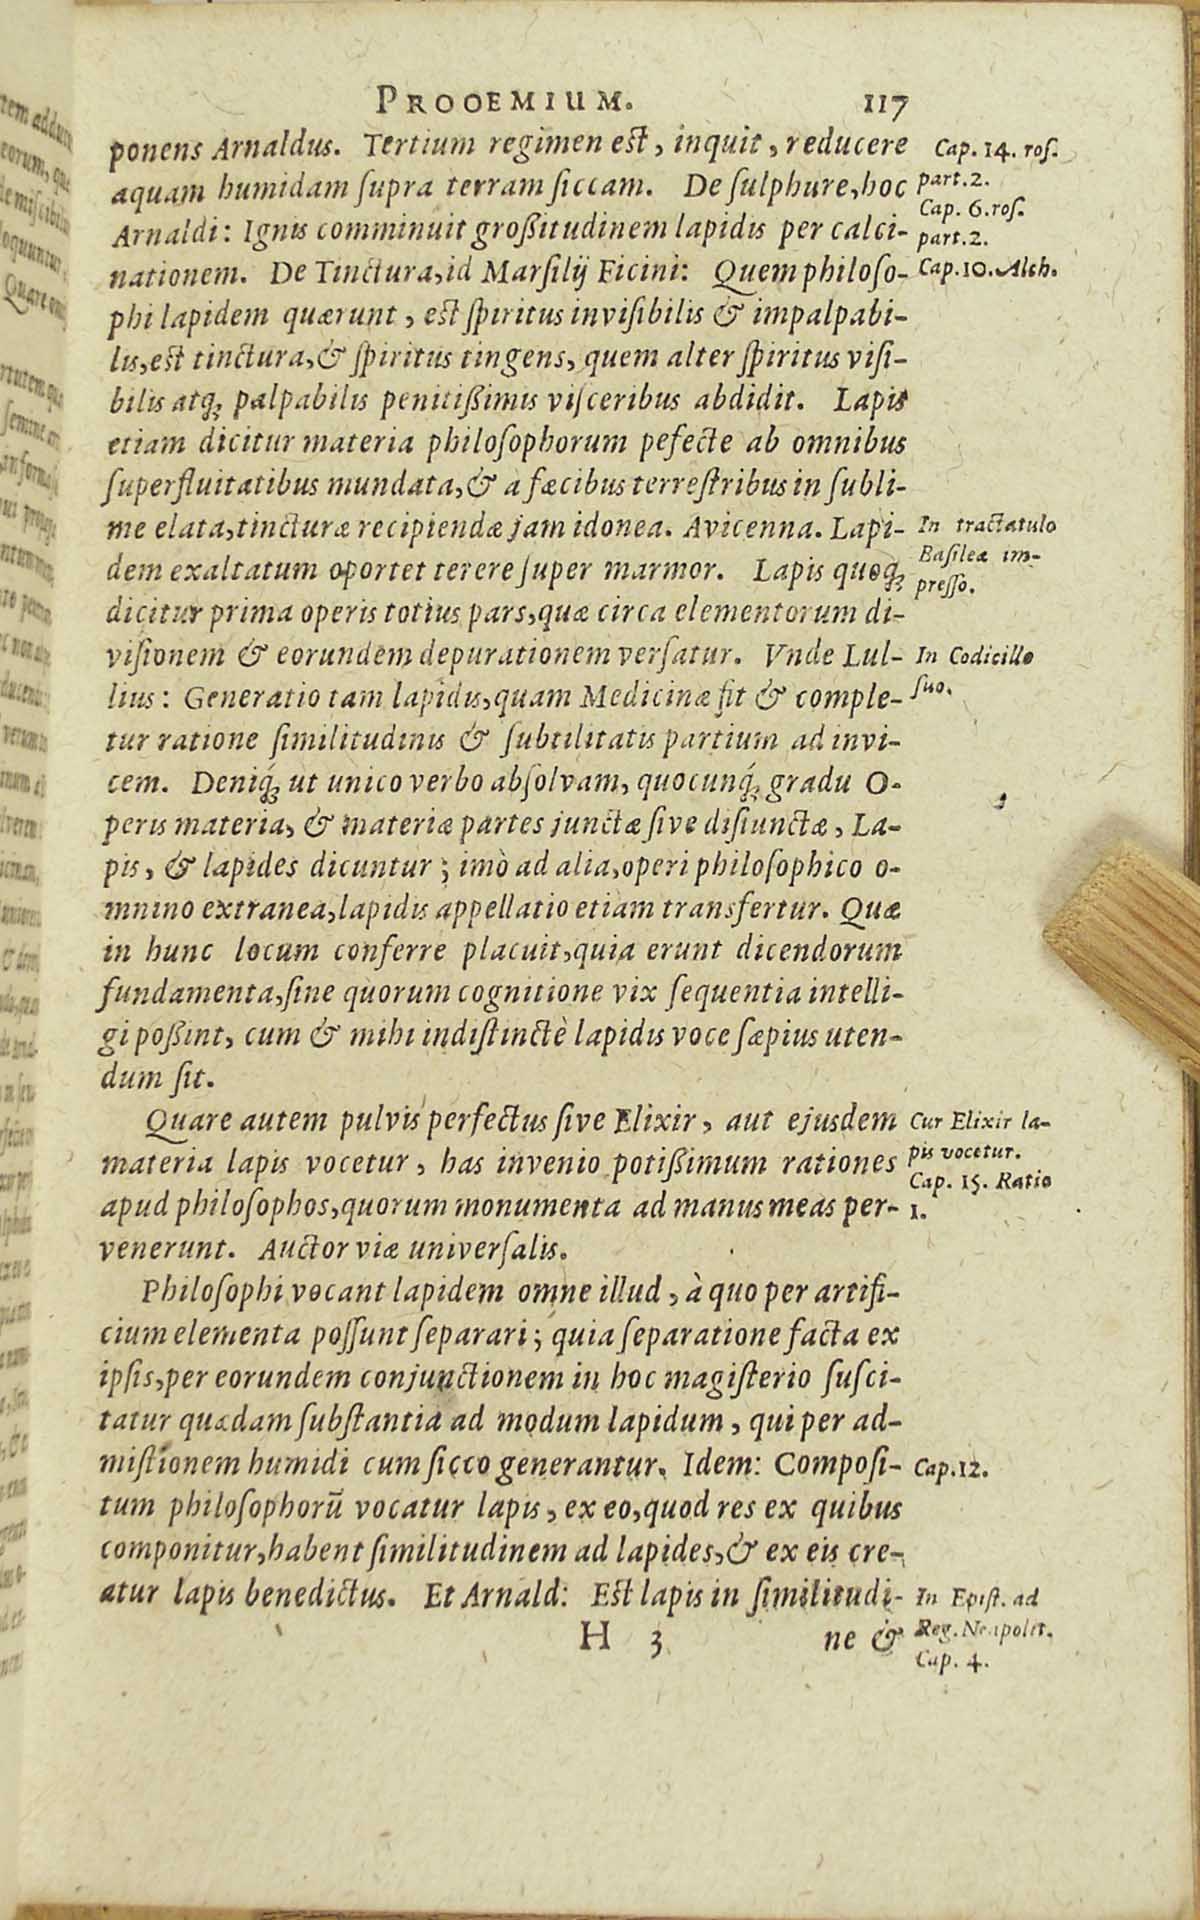 PROOEMIUM. 117
ponens Arnaldus. Tertium regimen est, inquit, reducere
aquam humidam supra terram siccam. De sulphure, hoc
Arnaldi: Ignis comminuit großitudinem lapidis per calci-
nationem. De Tinctura, id Marsilij Ficini: Quem philoso-
phi lapidem quærunt, est spiritus invisibilis & impalpabi-
lis, est tinctura, & spiritus tingens, quem alter spiritus visi-
bilis atq; palpabilis penitißimis visceribus abdidit. Lapis
etiam dicitur materia philosophorum pefecte ab omnibus
superfluitatibus mundata, & a fæcibus terrestribus in subli-
me elata, tincturæ recipiendæ jam idonea. Avicenna. Lapi-
dem exaltatum oportet terere super marmor. Lapis quoq;
dicitur prima operis totius pars, quæ circa elementorum di-
visionem & eorundem depurationem versatur. Vnde Lul-
lius: Generatio tam lapidis, quam Medicinæ fit & comple-
tur ratione similitudinis & subtilitatis partium ad invi-
cem. Deniq́; ut unico verbo absolvam, quocunq́; gradu O-
peris materia, & materiæ partes junctæ sive disiunctæ, La-
pis, & lapides dicuntur; imò ad alia, operi philosophico o-
mnino extranea, lapidis appellatio etiam transfertur. Quæ
in hunc locum conferre placuit, quia erunt dicendorum
fundamenta, sine quorum cognitione vix sequentia intelli-
gi poßint, cum & mihi indistinctè lapidis voce sæpius uten-
dum sit.
Quare autem pulvis perfectus sive Elixir, aut ejusdem
materia lapis vocetur, has invenio potißimum rationes
apud philosophos, quorum monumenta ad manus meas per-
venerunt. Auctor viæ universalis.
Philosophi vocant lapidem omne illud, à quo per artifi-
cium elementa possunt separari; quia separatione facta ex
ipsis, per eorundem conjunctionem in hoc magisterio susci-
tatur quædam substantia ad modum lapidum, qui per ad-
mistionem humidi cum sicco generantur. Idem: Composi-
tum philosophorū vocatur lapis, ex eo, quod res ex quibus
componitur, habent similitudinem ad lapides, & ex eis cre-
atur lapis benedictus. Et Arnald: Est lapis in similitudi-
H 3 ne &
Cap. 14. ros.
part. 2.
Cap. 6. ros.
part. 2.
Cap. 10. Alch.
In tractatulo
Basileæ im-
presso.
In Codicillo
suo.
Cur Elixir la-
pis vocetur.
Cap. 15. Ratio
1.
Cap. 12.
In Epist. ad
Reg. Neapolit.
Cap. 4.